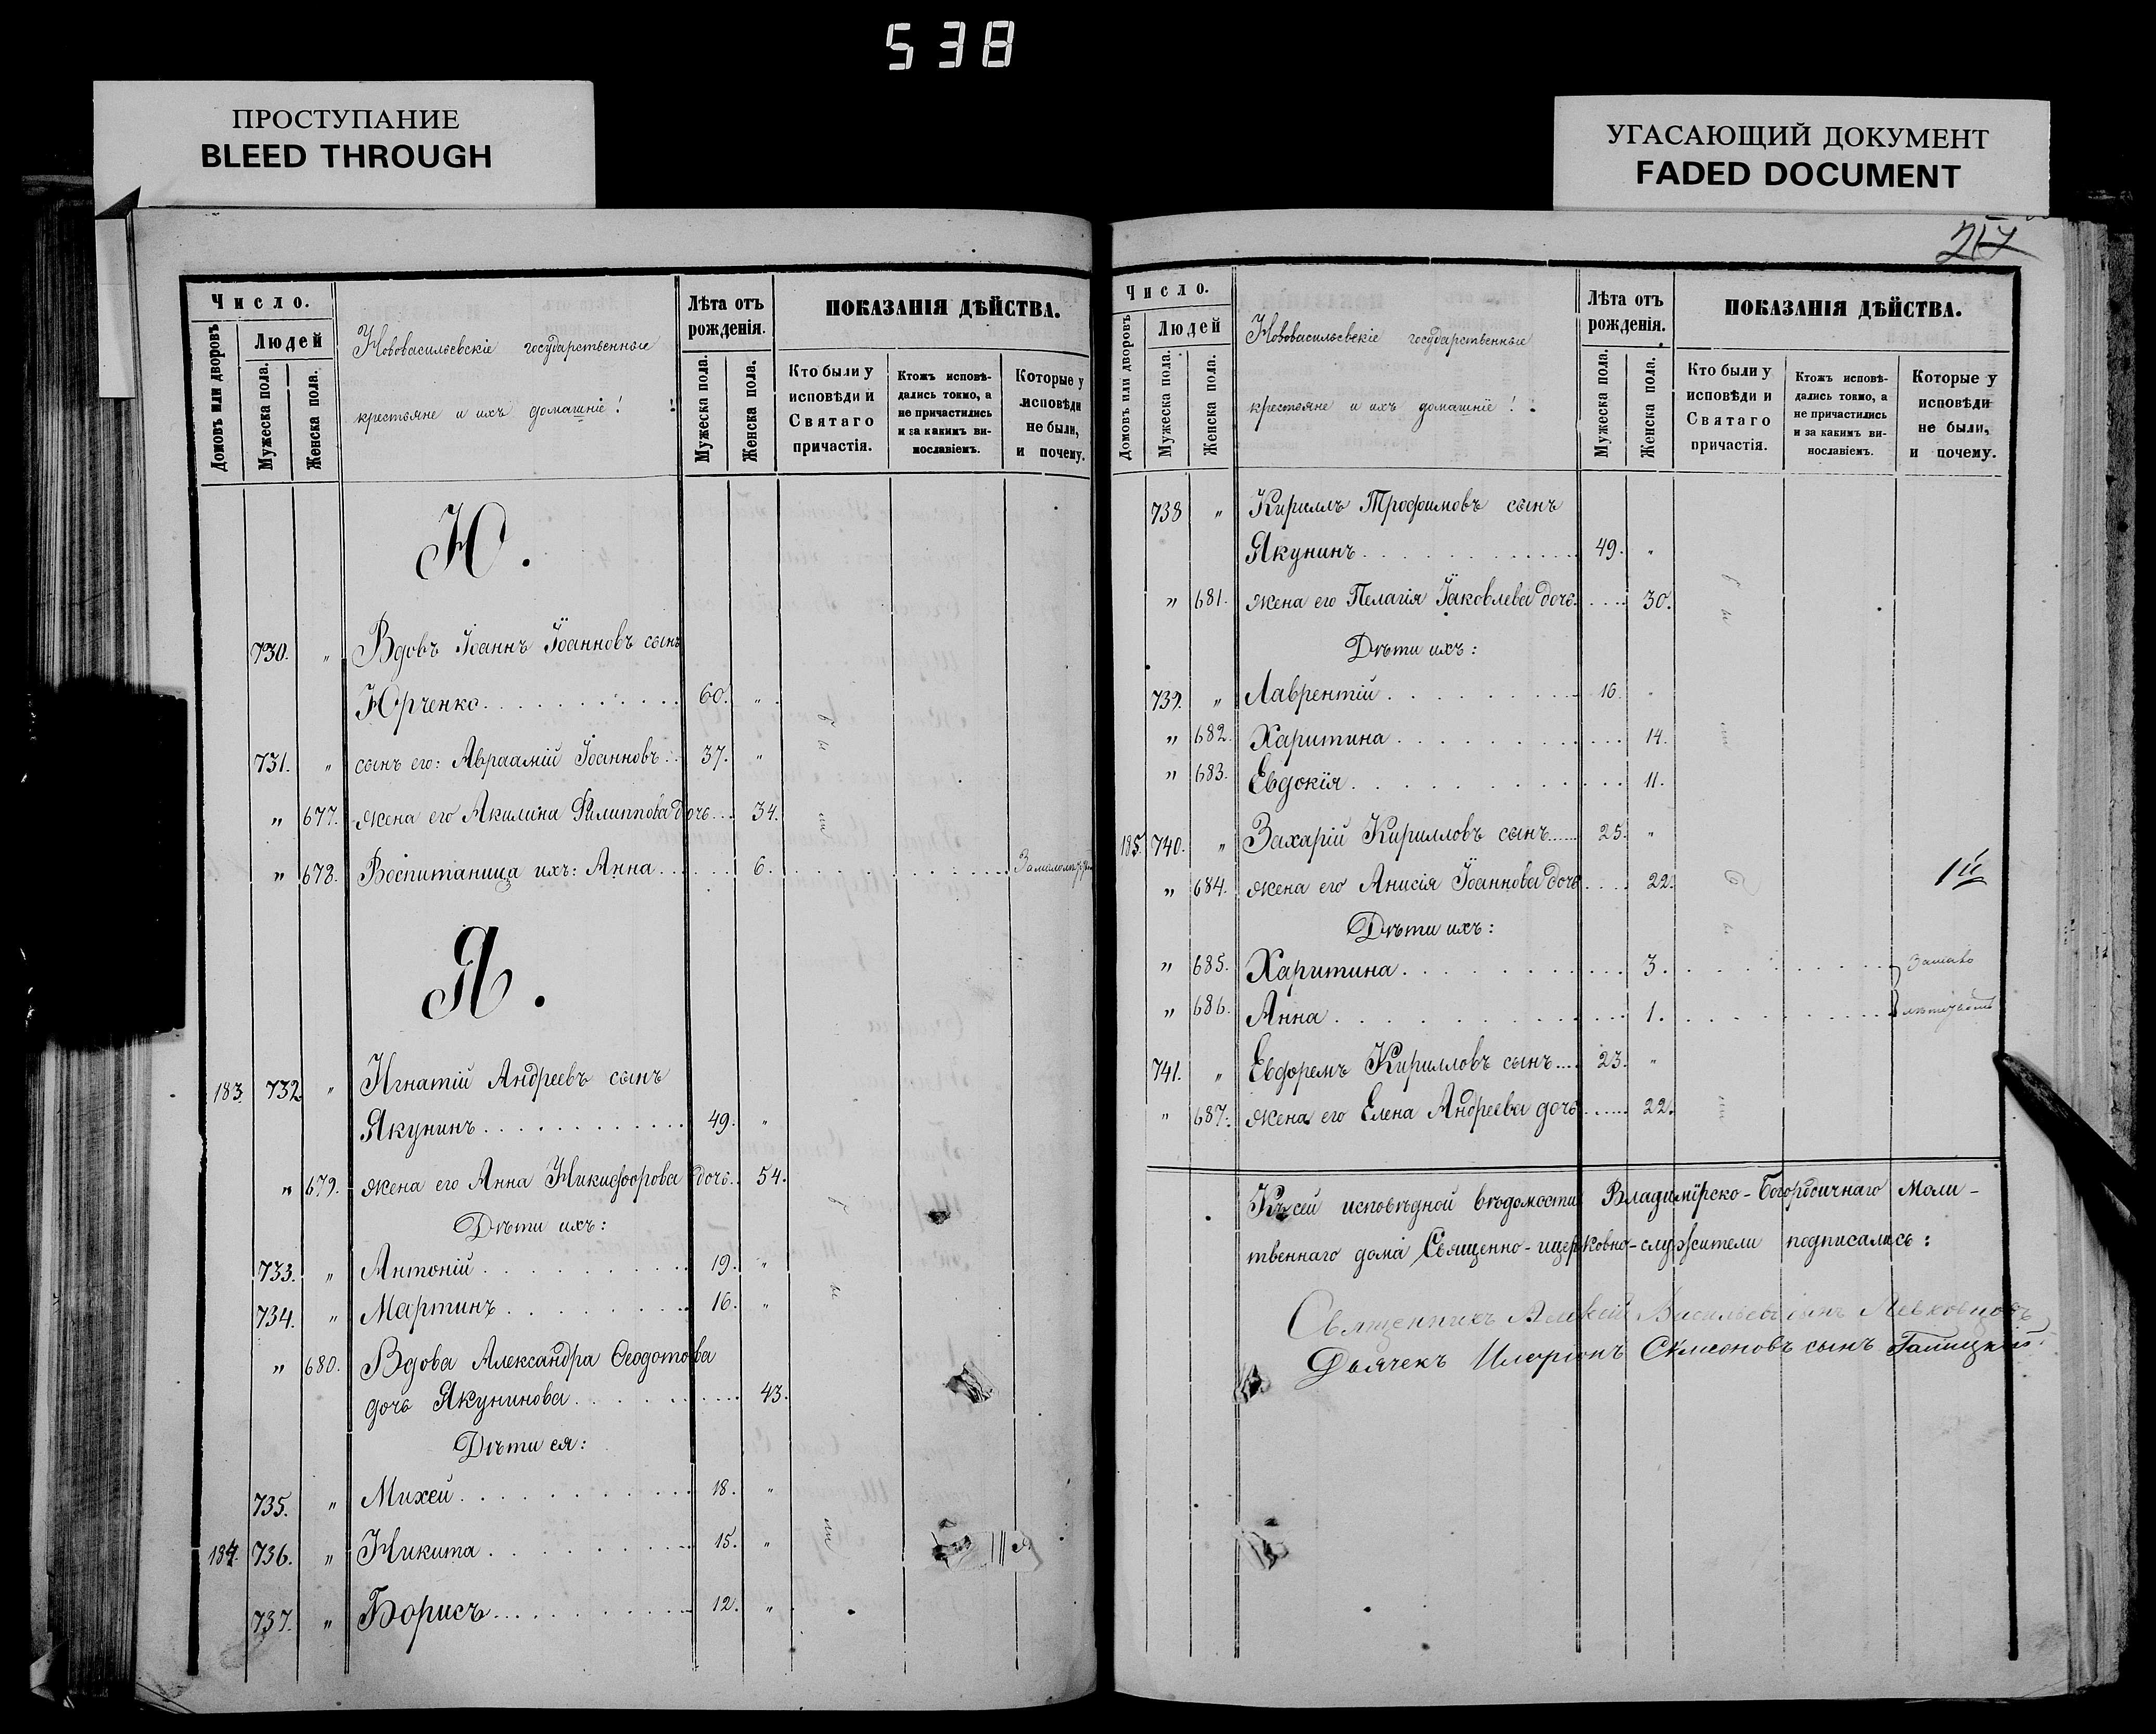 538
ПРОСТУПАНИЕ
BLEED THROUGH
УГАСАЮЩИЙ ДОКУМЕНТ
FADED DOCUMENT
Число.
Людей
Домовъ или дворовъ
Мужеска пола.
Женска пола.
Нововасильевскіе государственные
крестьяне и ихъ домашніе:
Лѣта отъ рожденія.
Мужеска пола.
Женска пола.
ПОКАЗАНІЯ ДѢЙСТВА.
Кто были у исповѣди и Святаго причастія.
Ктожъ исповѣ-дались токмо, а не причастились и за какимъ ви-нословіемъ.
Которые у исповѣди не были, и почему.
Ю.
730. " Вдовъ Іоаннъ Іоанновъ сынъ
Юрченко 60. "
731. " сынъ его: Авраамій Іоанновъ 37. "
" 677. жена его Акилина Филиппова дочь 34.
" 678. Воспитаница ихъ: Анна 6.
бы
ли
Я.
183. 732 " Игнатій Андреевъ сынъ
Якунинъ 49. "
" 679. жена его Анна Никифорова дочь 54.
Дѣти ихъ:
733. " Антоній 19. "
734. " Мартинъ 16. "
" 680. Вдова Александра Ѳеодотова
дочь Якунинова 43.
Дѣти ея:
735. " Михей 18. "
184. 736. " Никита 15. "
737. " Борисъ 12. "
Число.
Людей
Домовъ или дворовъ
Мужеска пола.
Женска пола.
Нововасильевскіе государственные
крестьяне и ихъ домашніе:
Лѣта отъ рожденія.
Мужеска пола.
Женска пола.
ПОКАЗАНІЯ ДѢЙСТВА.
Кто были у исповѣди и Святаго причастія.
Ктожъ исповѣ-дались токмо, а не причастились и за какимъ ви-нословіемъ.
Которые у исповѣди не были, и почему.
738 " Кириллъ Трофимовъ сынъ
Якунинъ 49. "
" 681. жена его Пелагія Іаковлева дочь 30.
Дѣти ихъ:
739. " Лаврентій 16. "
" 682. Харитина 14.
" 683. Евдокія 11.
185. 740. " Захарій Кирилловъ сынъ 25. "
" 684. жена его Анисія Іоаннова дочь 22.
Дѣти ихъ:
" 685. Харитина 3. Замало
" 686. Анна 1. лѣтствомъ
741. " Евфремъ Кирилловъ сынъ 23. "
" 687. жена его Елена Андреева дочь 22.
Къ сей исповѣдной вѣдомости Владимірско-Богородичнаго Моли-
твеннаго дома Священно-церковно-служители подписались:
Священникъ Алексій Васильевъ сынъ Левковцовъ
Дьячекъ Иларіонъ Симеоновъ сынъ Галицкій.